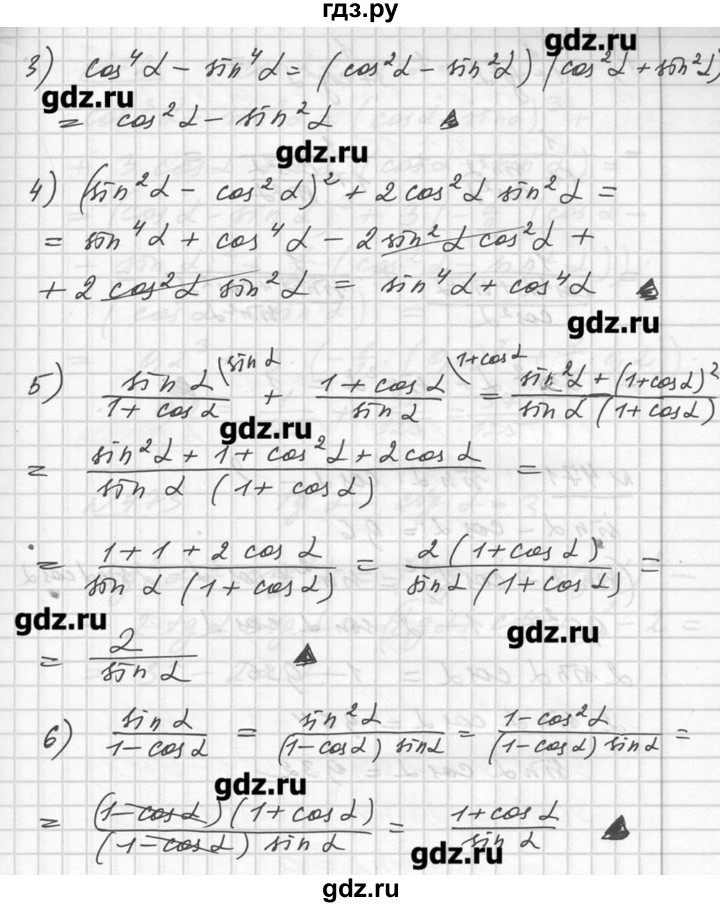 гдз.ру
3) cos⁴α − sin⁴α = (cos²α − sin²α)(cos²α + sin²α)
gdz.ru
gdz.ru
= cos²α − sin²α ▲
gdz.ru
4) (sin²α − cos²α)² + 2 cos²α sin²α =
= sin⁴α + cos⁴α − 2 sin²α cos²α +
+ 2 cos²α sin²α = sin⁴α + cos⁴α ▲
gdz.ru
5) sin α / (1 + cos α) \sin α + (1 + cos α) / sin α \1+cos α = (sin²α + (1+cos α)²) / (sin α (1+cos α))
gdz.ru
= (sin²α + 1 + cos²α + 2 cos α) / (sin α (1 + cos α)) =
= (1 + 1 + 2 cos α) / (sin α (1 + cos α)) = 2(1 + cos α) / (sin α (1 + cos α)) =
gdz.ru
gdz.ru
= 2 / sin α ▲
6) sin α / (1 − cos α) = sin²α / ((1−cos α) sin α) = (1−cos²α) / ((1−cos α) sin α) =
gdz.ru
= (1−cos α)(1+cos α) / ((1−cos α) sin α) = (1+cos α) / sin α ▲
gdz.ru
gdz.ru